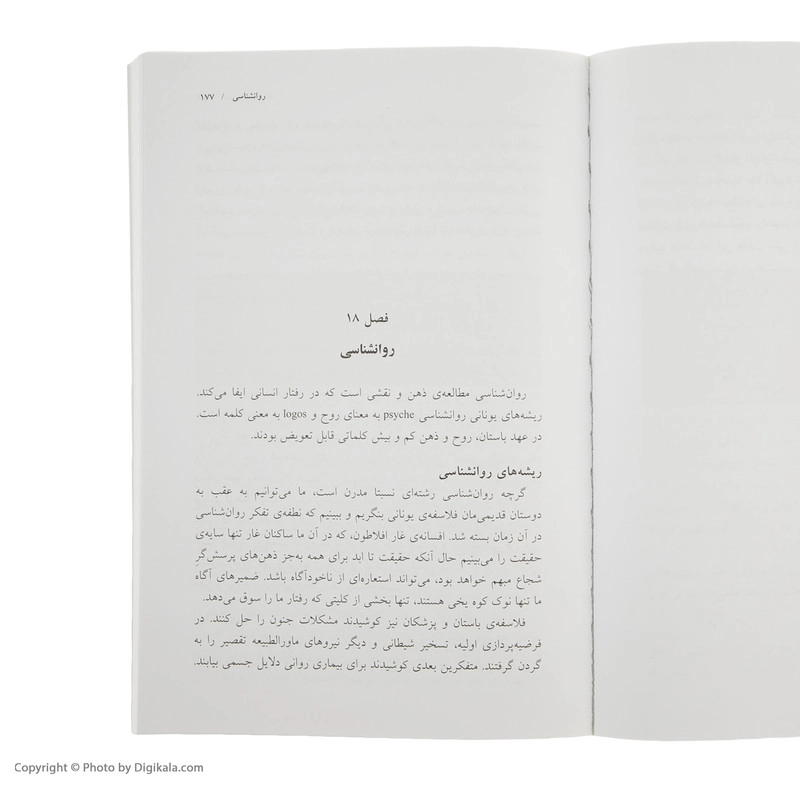 روانشناسی / ۱۷۷
فصل ۱۸
روانشناسی
روان‌شناسی مطالعه‌ی ذهن و نقشی است که در رفتار انسانی ایفا می‌کند.
ریشه‌های یونانی روانشناسی psyche به معنای روح و logos به معنی کلمه است.
در عهد باستان، روح و ذهن کم و بیش کلماتی قابل تعویض بودند.
ریشه‌های روانشناسی
گرچه روان‌شناسی رشته‌ای نسبتا مدرن است، ما می‌توانیم به عقب به
دوستان قدیمی‌مان فلاسفه‌ی یونانی بنگریم و ببینیم که نطفه‌ی تفکر روان‌شناسی
در آن زمان بسته شد. افسانه‌ی غار افلاطون، که در آن ما ساکنان غار تنها سایه‌ی
حقیقت را می‌بینیم حال آنکه حقیقت تا ابد برای همه به‌جز ذهن‌های پرسش‌گرِ
شجاع مبهم خواهد بود، می‌تواند استعاره‌ای از ناخودآگاه باشد. ضمیرهای آگاه
ما تنها نوک کوه یخی هستند، تنها بخشی از کلیتی که رفتار ما را سوق می‌دهد.
فلاسفه‌ی باستان و پزشکان نیز کوشیدند مشکلات جنون را حل کنند. در
فرضیه‌پردازی اولیه، تسخیر شیطانی و دیگر نیروهای ماورالطبیعه تقصیر را به
گردن گرفتند. متفکرین بعدی کوشیدند برای بیماری روانی دلایل جسمی بیابند.
Copyright © Photo by Digikala.com